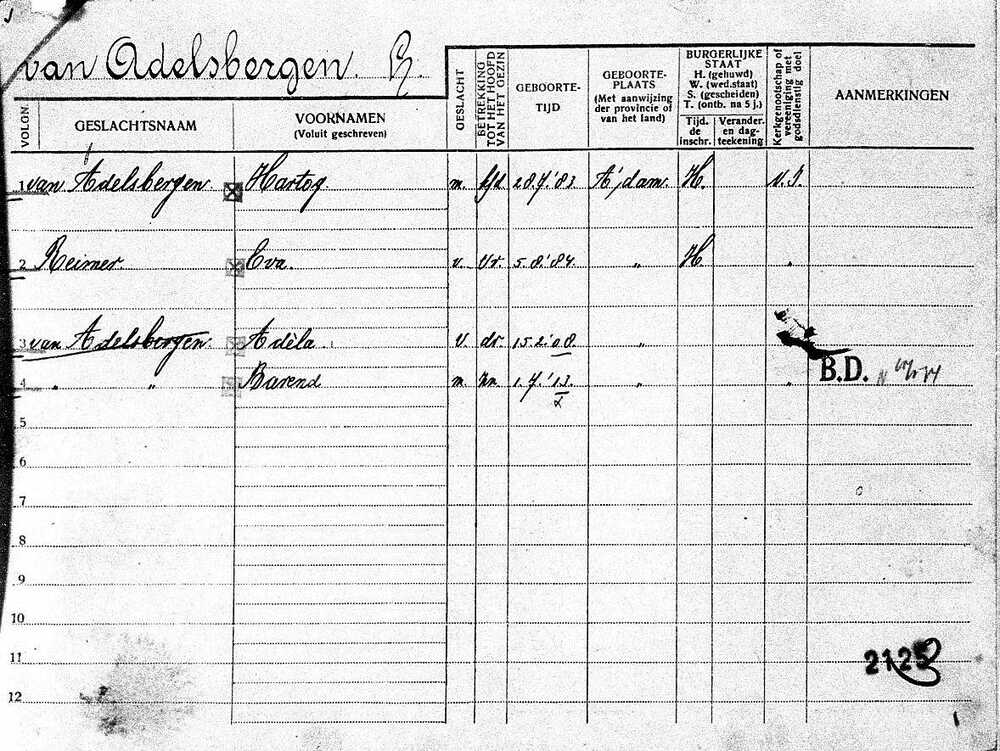 van Adelsbergen. H.
VOLGN. GESLACHTSNAAM VOORNAMEN (Voluit geschreven) GESLACHT BETREKKING TOT HET HOOFD VAN HET GEZIN GEBOORTE-TIJD GEBOORTE-PLAATS (Met aanwijzing der provincie of van het land) BURGERLIJKE STAAT H. (gehuwd) W. (wed.staat) S. (gescheiden) T. (ontb. na 5 j.) Tijd. de inschr. Verander. en dag-teekening Kerkgenootschap of vereeniging met godsdienstig doel AANMERKINGEN
1 van Adelsbergen. Hartog. m. hfd. 28.7.'83 A'dam. H. N.I.
2 Reimer. Eva. v. Vr. 5.8.'84. „ H „
3 van Adelsbergen. Adèla. v. dr. 15.2.'08. „
4 „ „ Barend m. zn. 1.7.'13. „ „ B.D.
5
6
7
8
9
10
11 2125
12